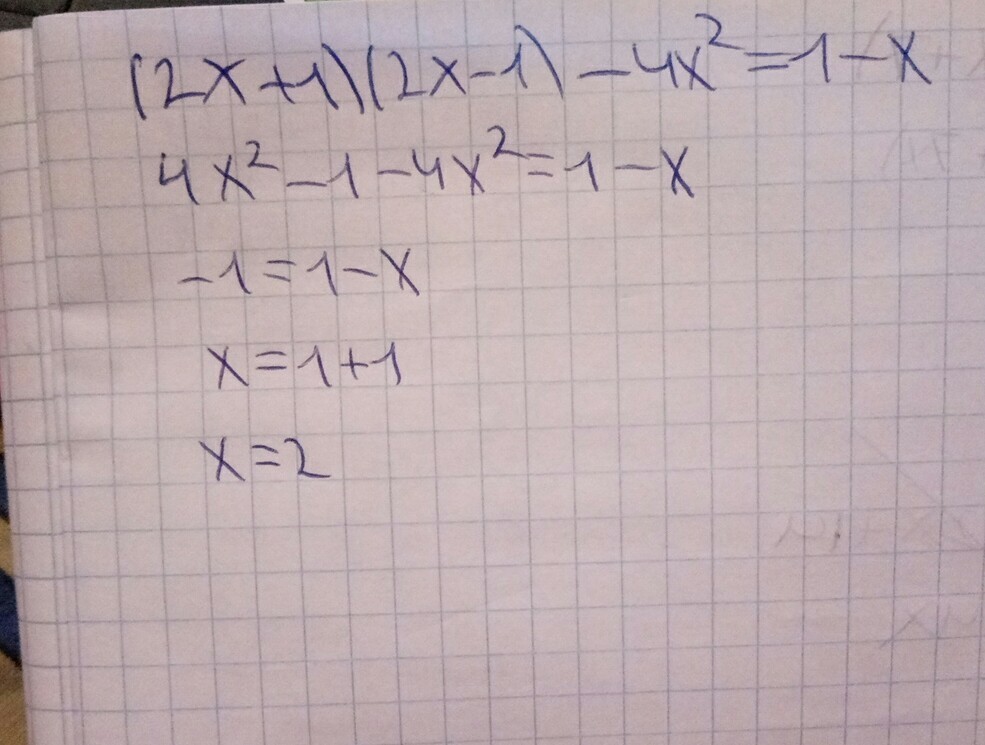 (2x+1)(2x-1)-4x²=1-x
4x²-1-4x²=1-x
-1=1-x
x=1+1
x=2